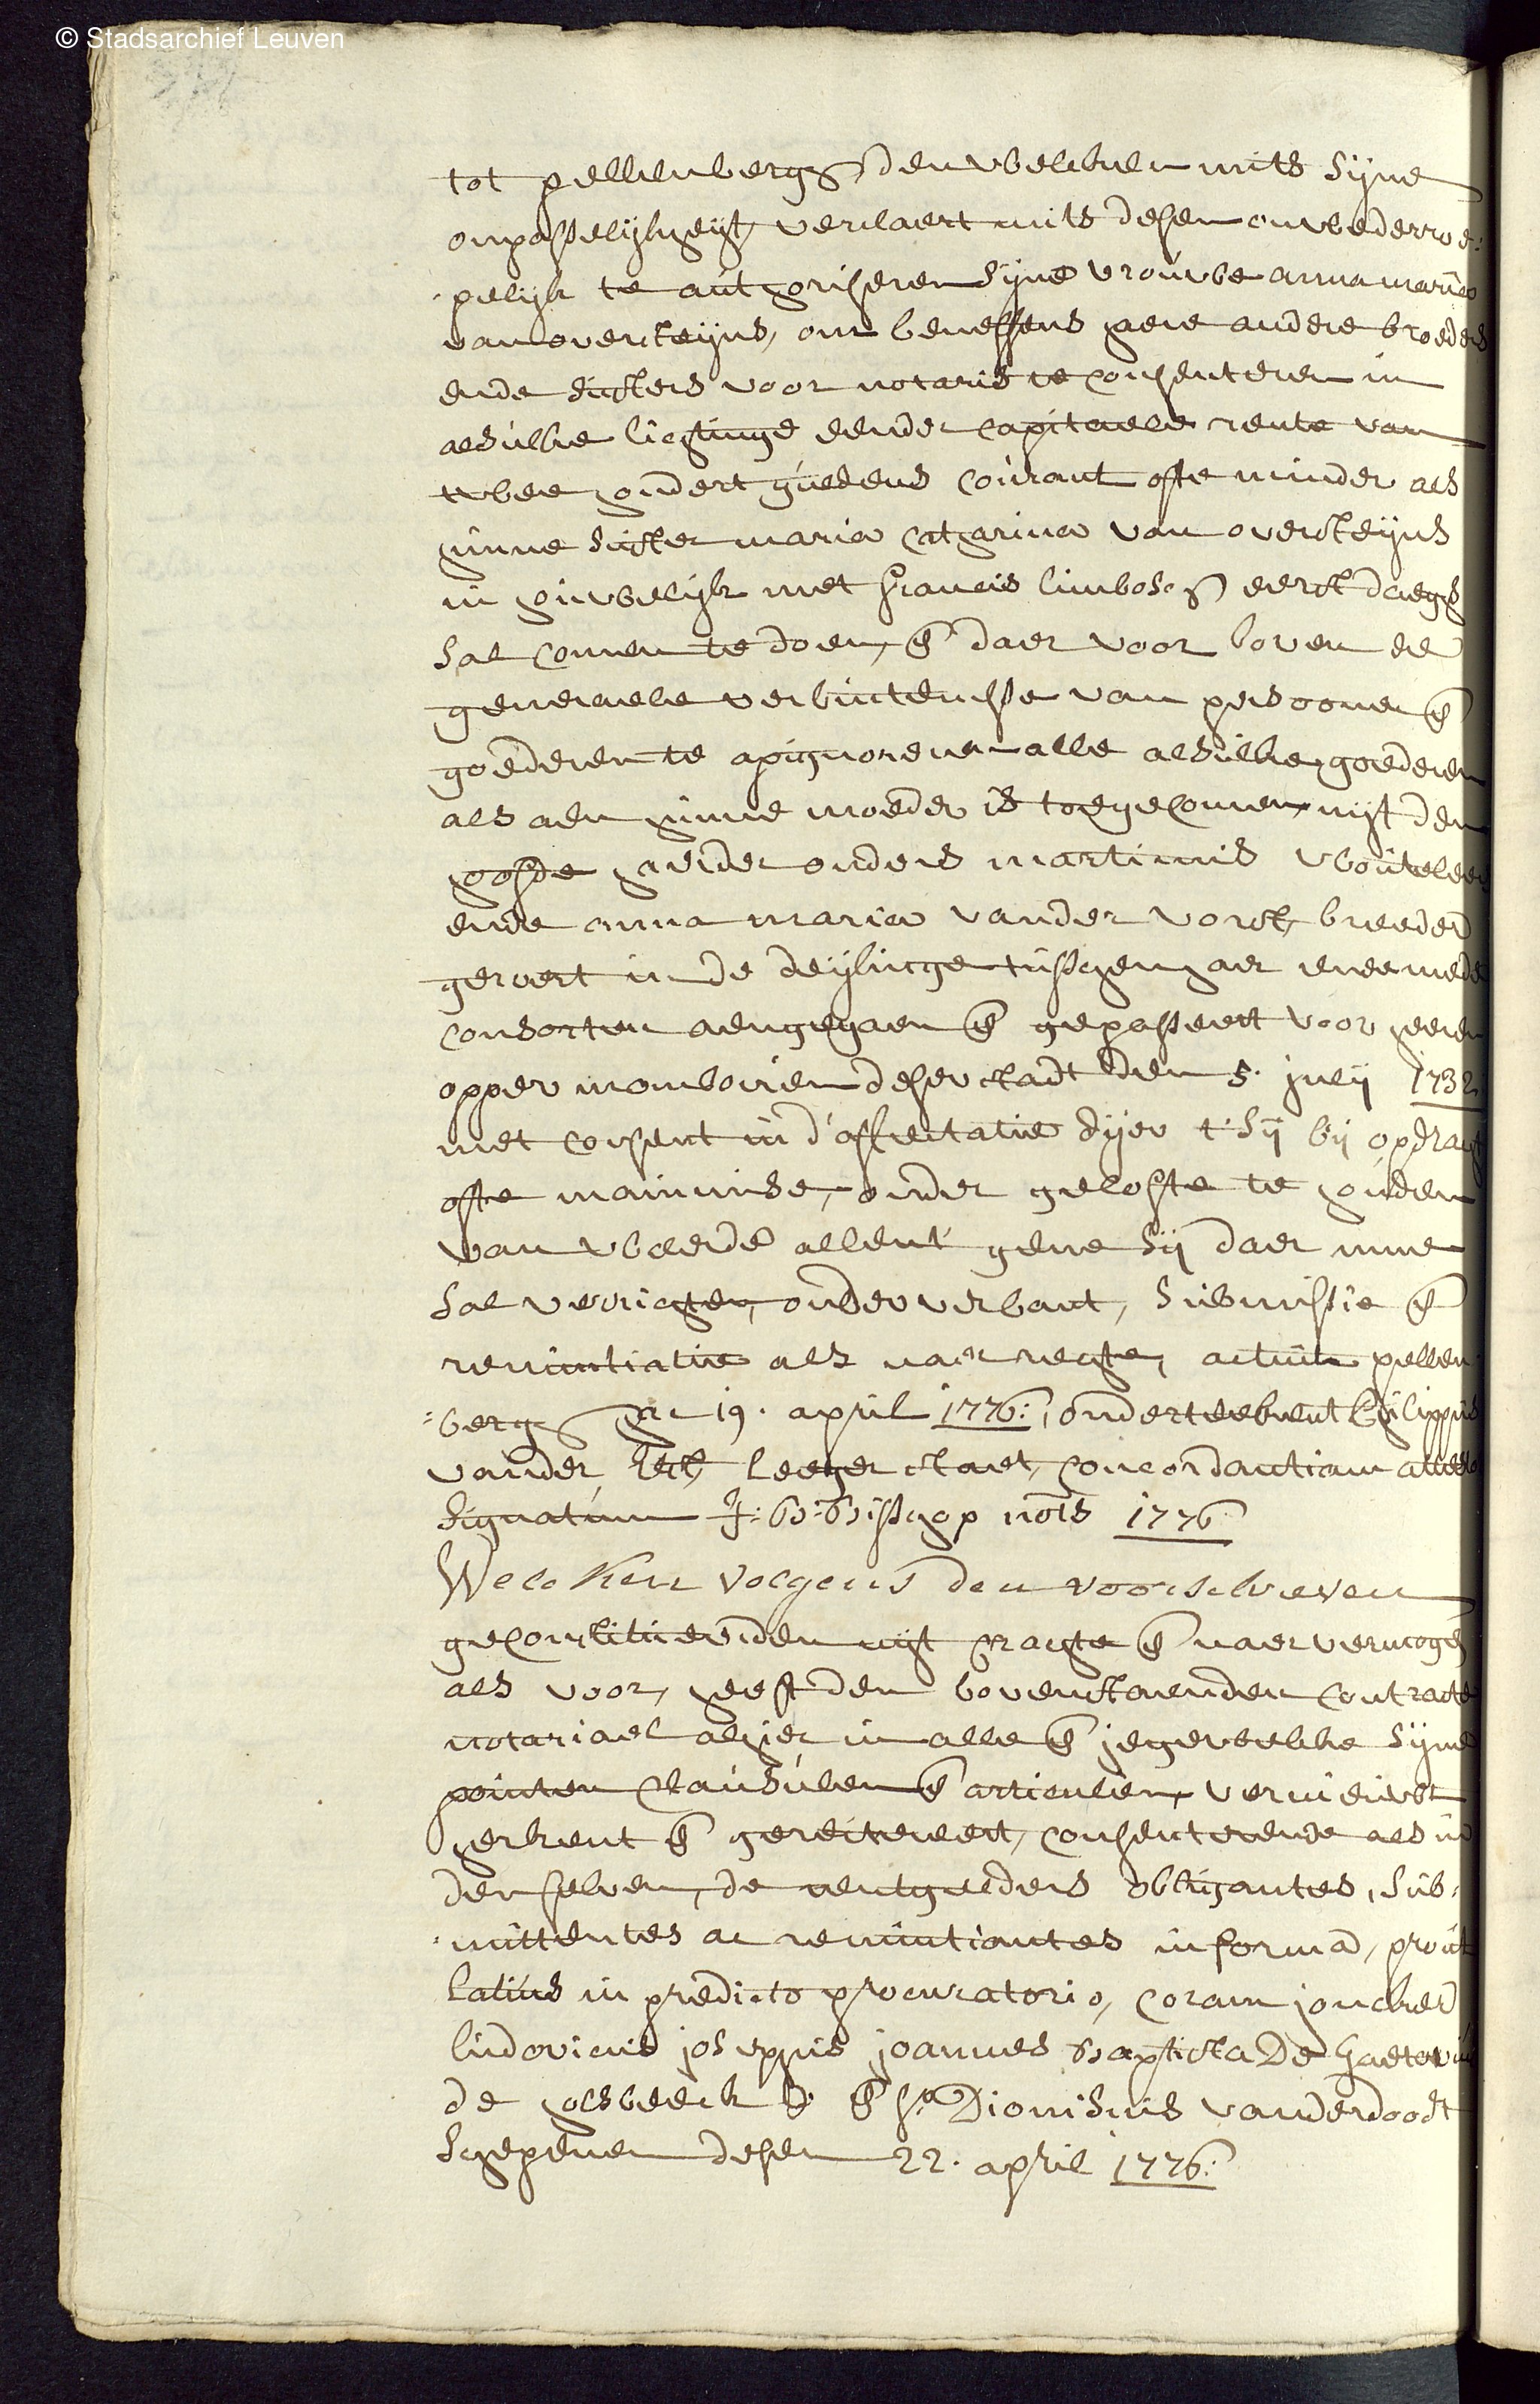 © Stadsarchief Leuven
tot pellenbergh, den welcken mits sijne
onpasselijkheijt, verclaert mits desen onwederroe:
:pelijk te authoriseren sijne vrouwe anna maria
van oversteijns, om beneffens haere andere broeders
ende susters voor notaris te consenteren in
alsulke lichtinge eender capitaele rente van
twee hondert guldens courant ofte minder als
hunne suster maria catharina van oversteijns
in houwelijk met francis limbosch eerst daegs
sal comen te doen, en daer voor boven de
generaele verbintenisse van persoonen en
goederen te apignoreren alle alsulke goederen
als aen hunne moeder is toegecomen, uijt den
hoofde haerder ouders martinus wouteleers
ende anna maria vander vorst, breeder
geroert in de deijlinge tusschen haer ende mede
consorten aengegaen en gepasseert voor heeren
opper momboiren deser stadt den 5. julij 1732
met consent in d'affectatie dijer t'sij bij opdracht
ofte mainmise, onder gelofte te houden
van weerde allen't gene sij daer inne
sal verrichten, onder verbant, submissie en
renuntiatie als naer rechte, actum pellen:
:bergh hac 19. april 1776:, onderteekent philippus
vander leeger staet, concordantiam attestor
signatum J: B: Bisschop nots 1776
Welcken volgens den voorschreven
geconstitueerden uijt crachte en naer vermogen
als voor, heeft den bovenstaenden contracte
notariael alhier in alle en jegewelcke sijne
pointen clausulen en articulen, vernieuwt
herkent en gereitereert, consenterende als in
den selven, de rentgelders obligantes, sub:
:mittentes ac renuntiantes in forma, prout
latius in predicto procuratorio, coram joncker
ludovicus josephus joannes Baptista De
de holsbeeck en Dionisius vanderdoodt
schepenen desen 22. april 1776: